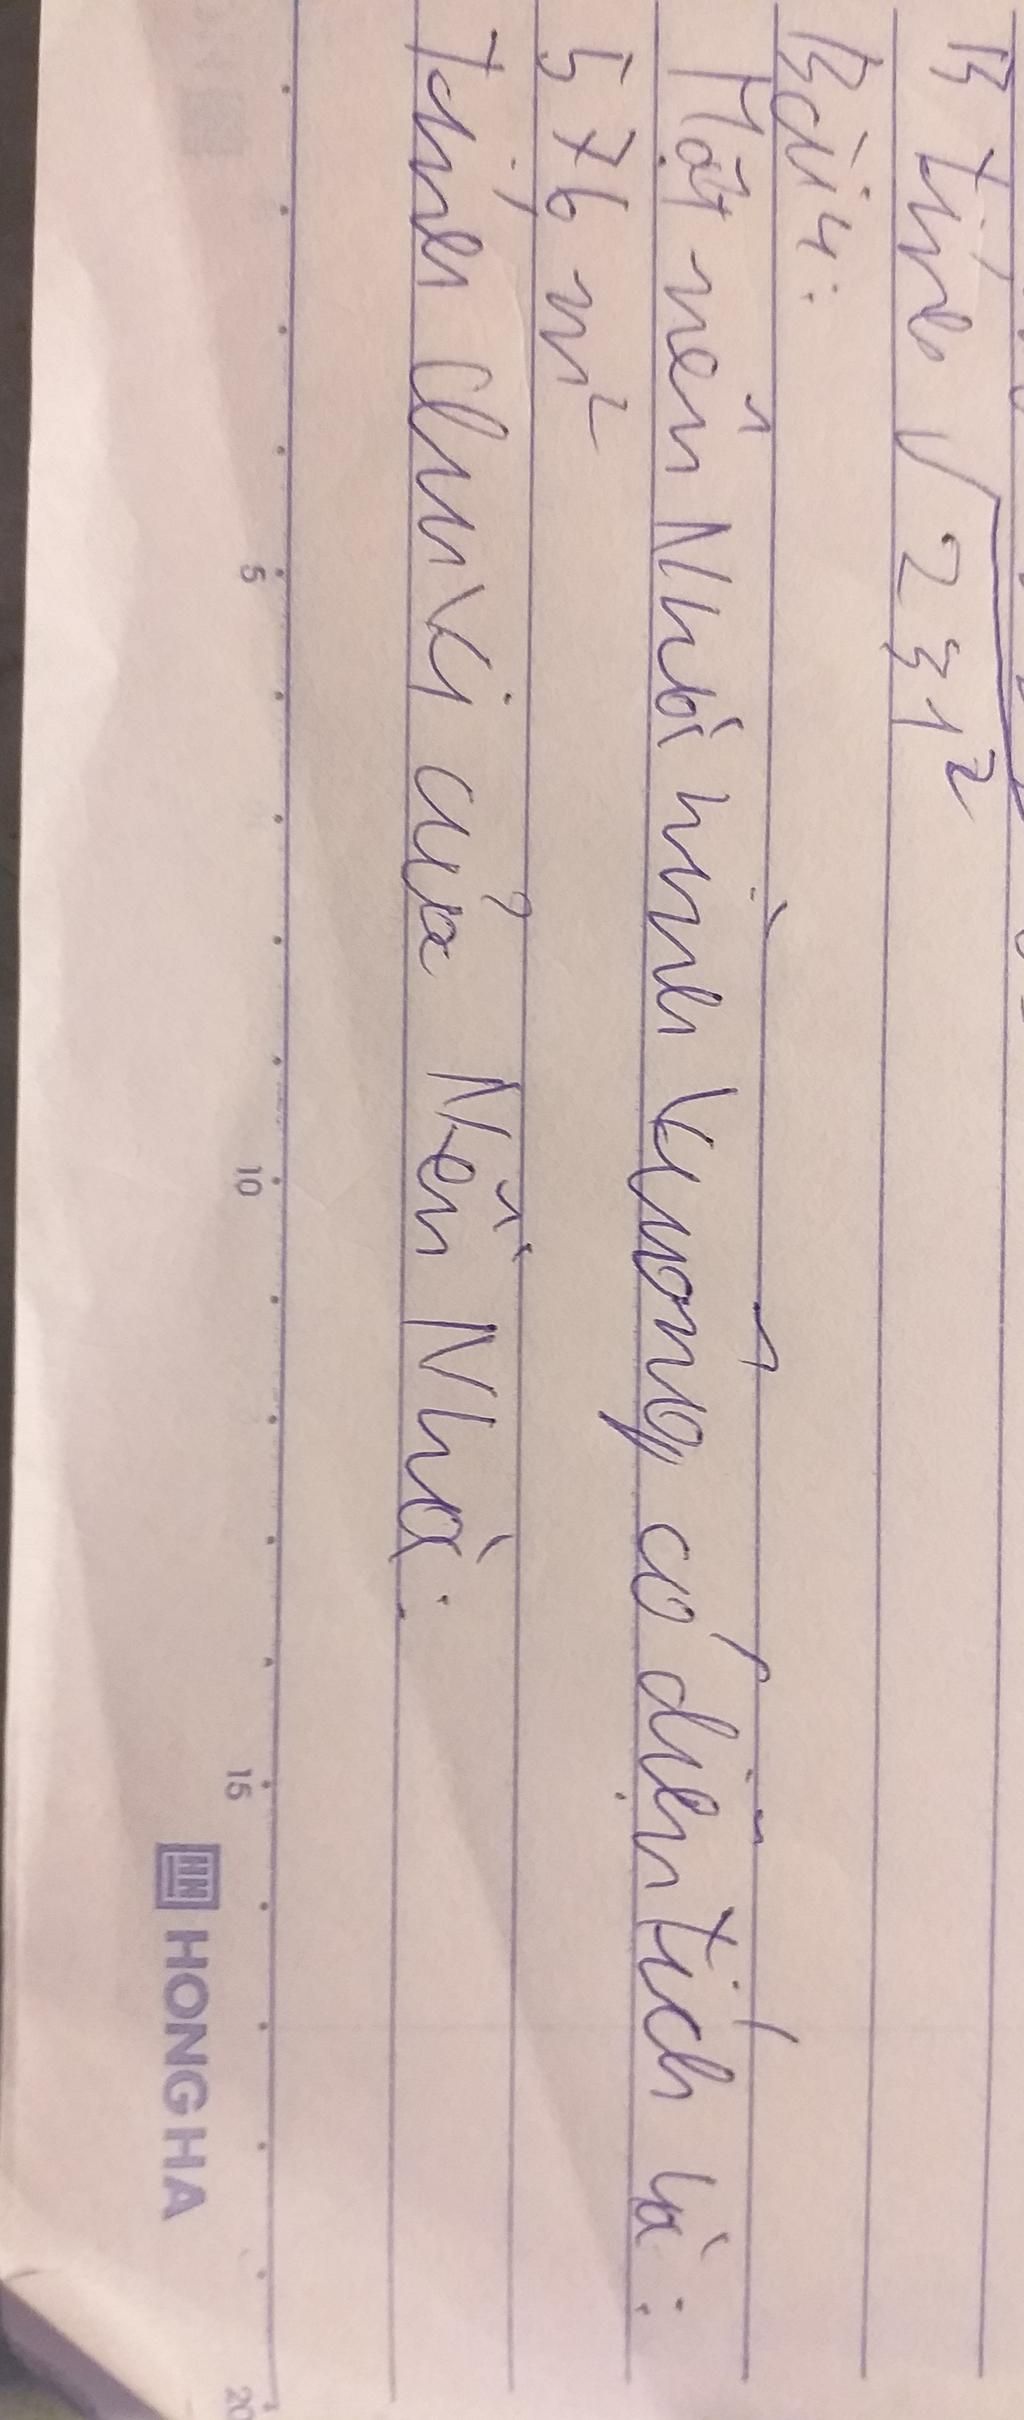 B tính √231²
Bài 4:
Một nền Nhà hình Vuông có diện tích là:
576 m²
Tính Chu Vi của Nền Nhà.
5 10 15 20
HONG HA